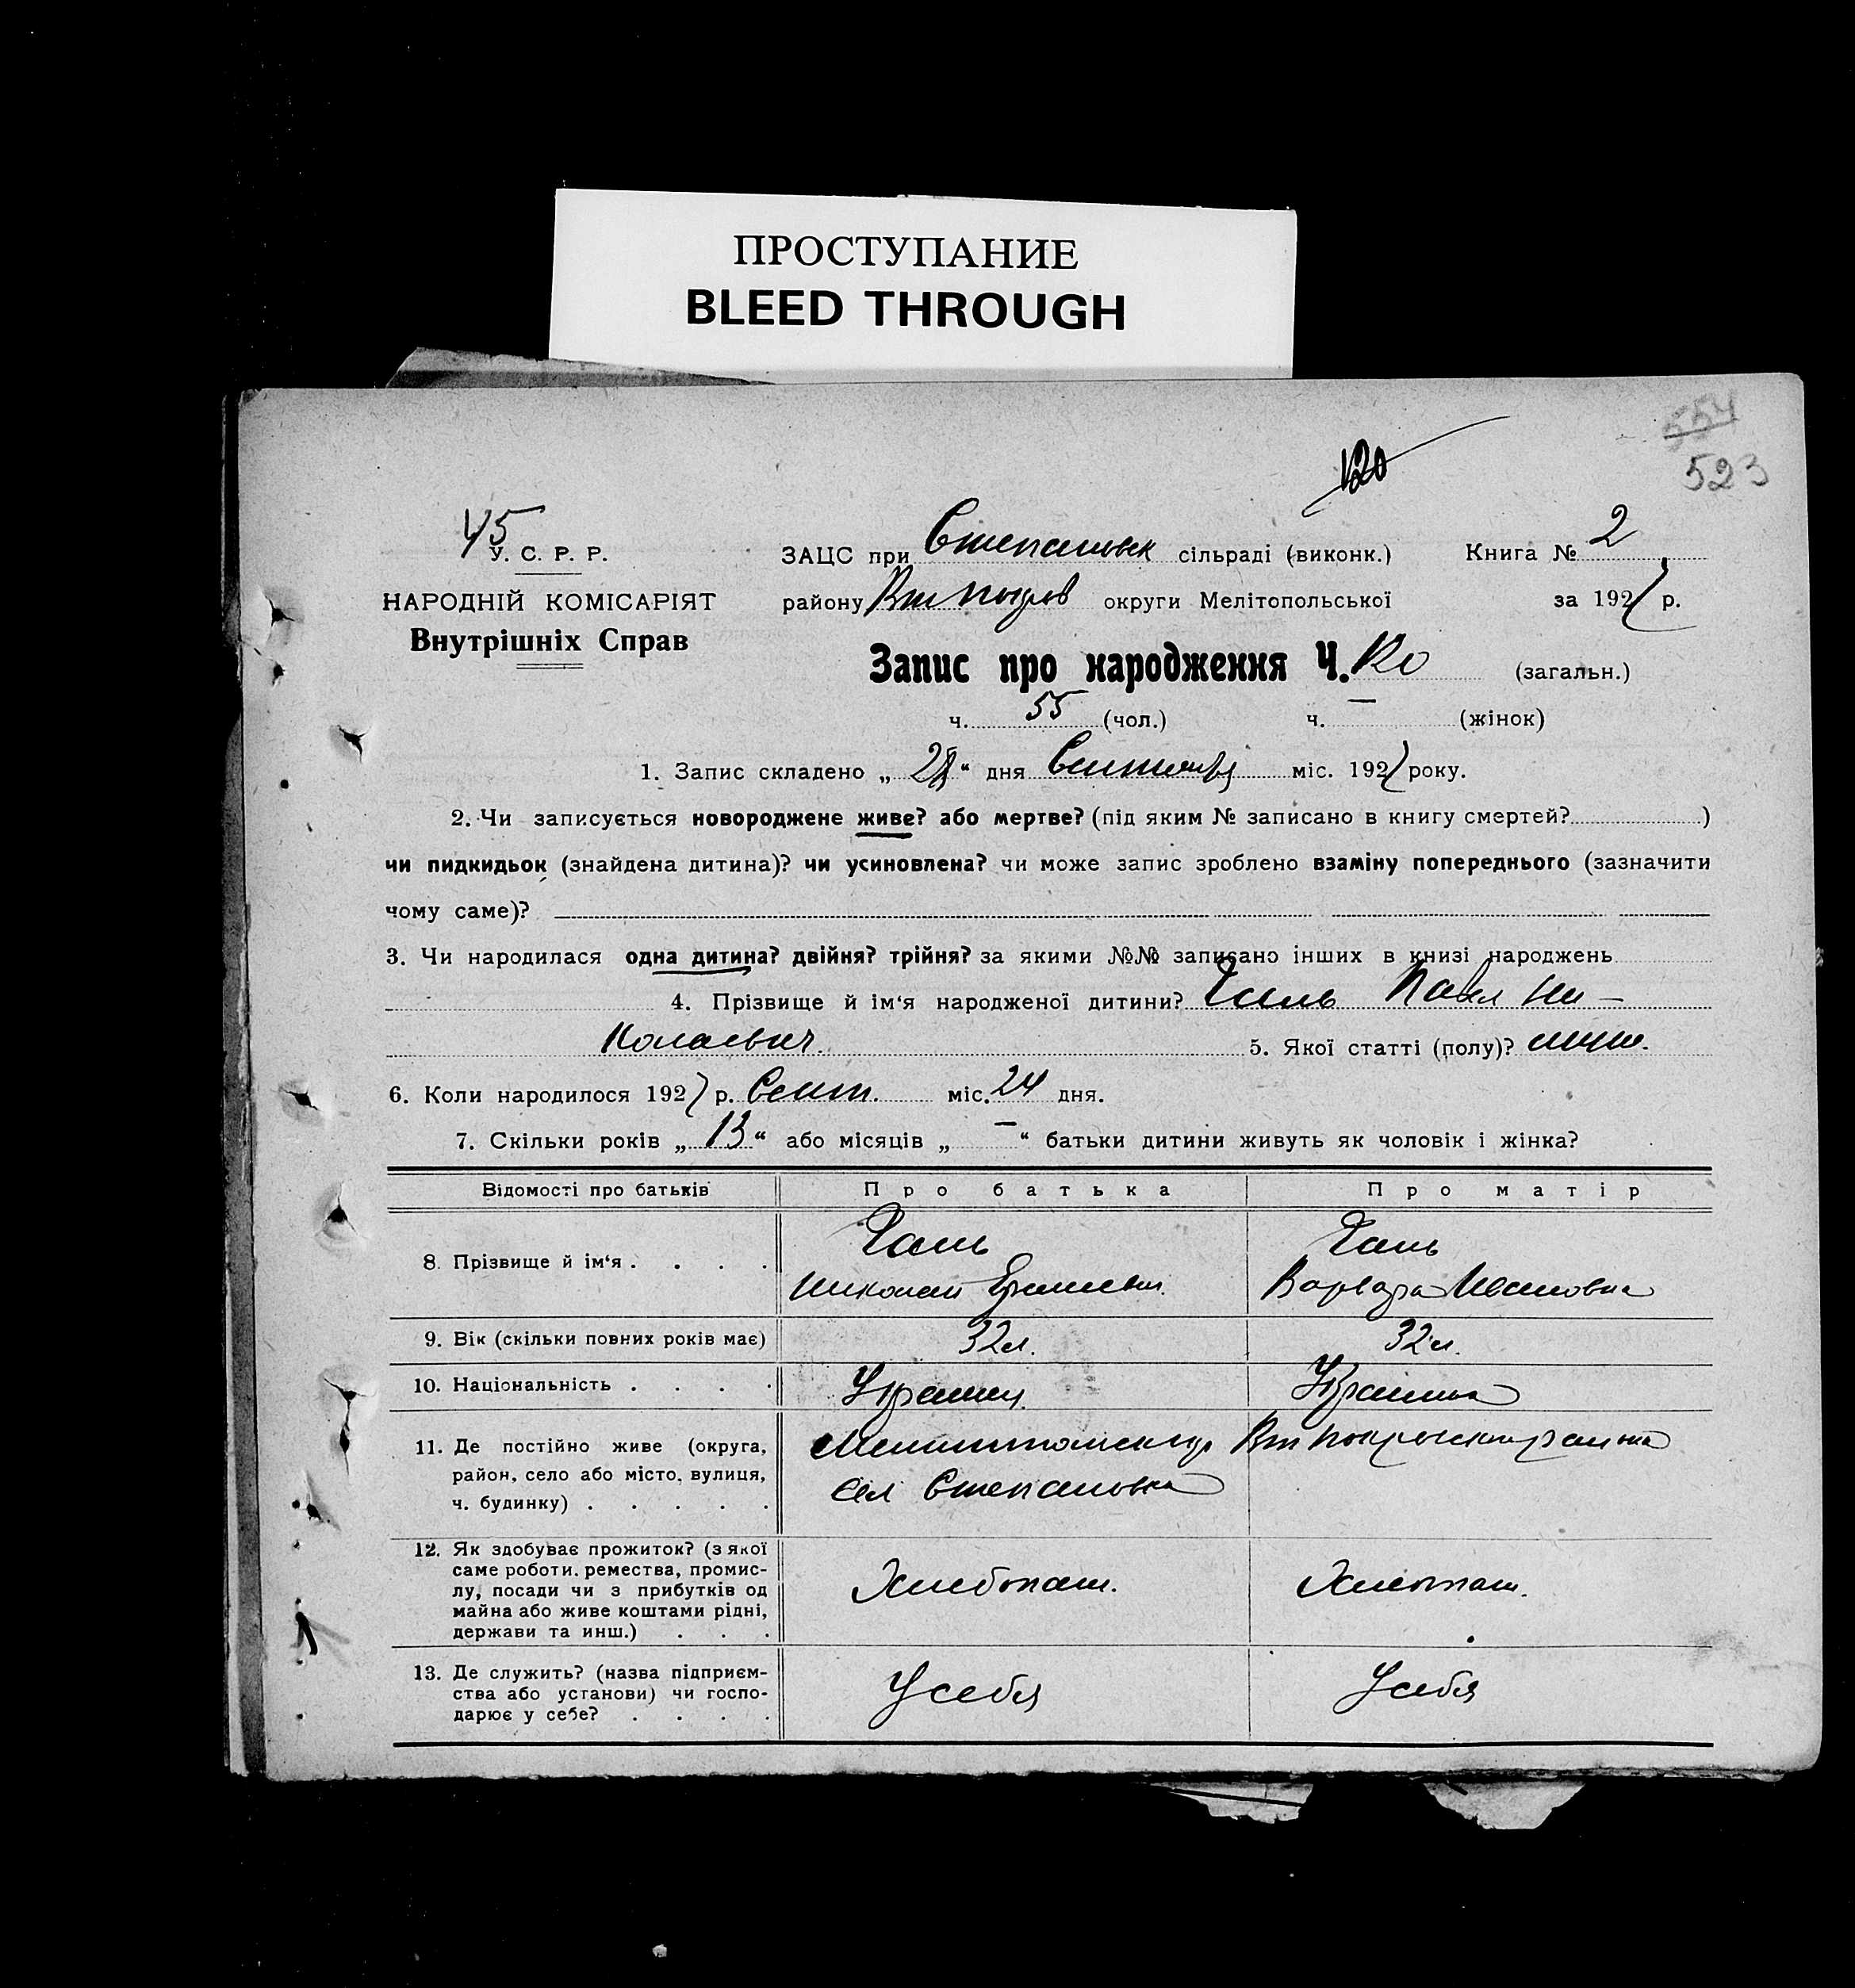 ПРОСТУПАНИЕ
BLEED THROUGH
554
523
120
45
У. С. Р. Р.
НАРОДНІЙ КОМІСАРІЯТ
Внутрішніх Справ
ЗАЦС при Степановск сільраді (виконк.) Книга № 2
району Вт Покров округи Мелітопольської за 1927 р.
Запис про народження Ч. 120 (загальн.)
ч. 55 (чол.) ч. — (жінок)
1. Запис складено „ “ дня Сентября міс. 1927 року.
2. Чи записується новороджене живе? або мертве? (під яким № записано в книгу смертей? )
чи пидкидьок (знайдена дитина)? чи усиновлена? чи може запис зроблено взаміну попереднього (зазначити
чому саме)?
3. Чи народилася одна дитина? двійня? трійня? за якими №№ записано інших в книзі народжень
4. Прізвище й ім‘я народженої дитини? Павел Ни-
колаевич. 5. Якої статті (полу)? муж.
6. Коли народилося 1927 р. Сент. міс. 24 дня.
7. Скільки років „ 13 “ або місяців „ — “ батьки дитини живуть як чоловік і жінка?
Відомості про батьків Про батька Про матір
8. Прізвище й ім‘я . . . .
Николай
Варвара Ивановна
9. Вік (скільки повних років має) 32 л. 32 л.
10. Національність . . . . Украинец. Украинка
11. Де постійно живе (округа, район, село або місто, вулиця, ч. будинку) . . . . .
Вт Покровского района
сел Степановка
12. Як здобуває прожиток? (з якої
саме роботи, ремества, промис-
лу, посади чи з прибутків од
майна або живе коштами рідні,
держави та инш.) . . .
Хлебопаш. Хлебопаш.
13. Де служить? (назва підприєм-
ства або установи) чи госпо-
дарює у себе? . . . .
У себя У себя